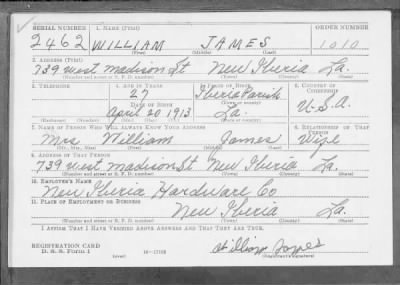 SERIAL NUMBER 1. NAME (Print) ORDER NUMBER
2462 WILLIAM JAMES 1010
(First) (Middle) (Last)
2. ADDRESS (Print)
739 West Madison St New Iberia La.
(Number and street or R. F. D. number) (Town) (County) (State)
3. TELEPHONE 4. AGE IN YEARS 5. PLACE OF BIRTH 6. COUNTRY OF CITIZENSHIP
27 Iberia Parish
DATE OF BIRTH (Town or county)
April 20 1913 La. U.S.A.
(Exchange) (Number) (Mo.) (Day) (Yr.) (State or country)
7. NAME OF PERSON WHO WILL ALWAYS KNOW YOUR ADDRESS 8. RELATIONSHIP OF THAT PERSON
Mrs William James Wife
(Mr., Mrs., Miss) (First) (Middle) (Last)
9. ADDRESS OF THAT PERSON
739 West Madison St New Iberia La.
(Number and street or R. F. D. number) (Town) (County) (State)
10. EMPLOYER'S NAME
New Iberia Hardware Co
11. PLACE OF EMPLOYMENT OR BUSINESS
New Iberia La.
(Number and street or R. F. D. number) (Town) (County) (State)
I AFFIRM THAT I HAVE VERIFIED ABOVE ANSWERS AND THAT THEY ARE TRUE.
REGISTRATION CARD
D. S. S. Form 1 William James
(over) (Registrant's signature)